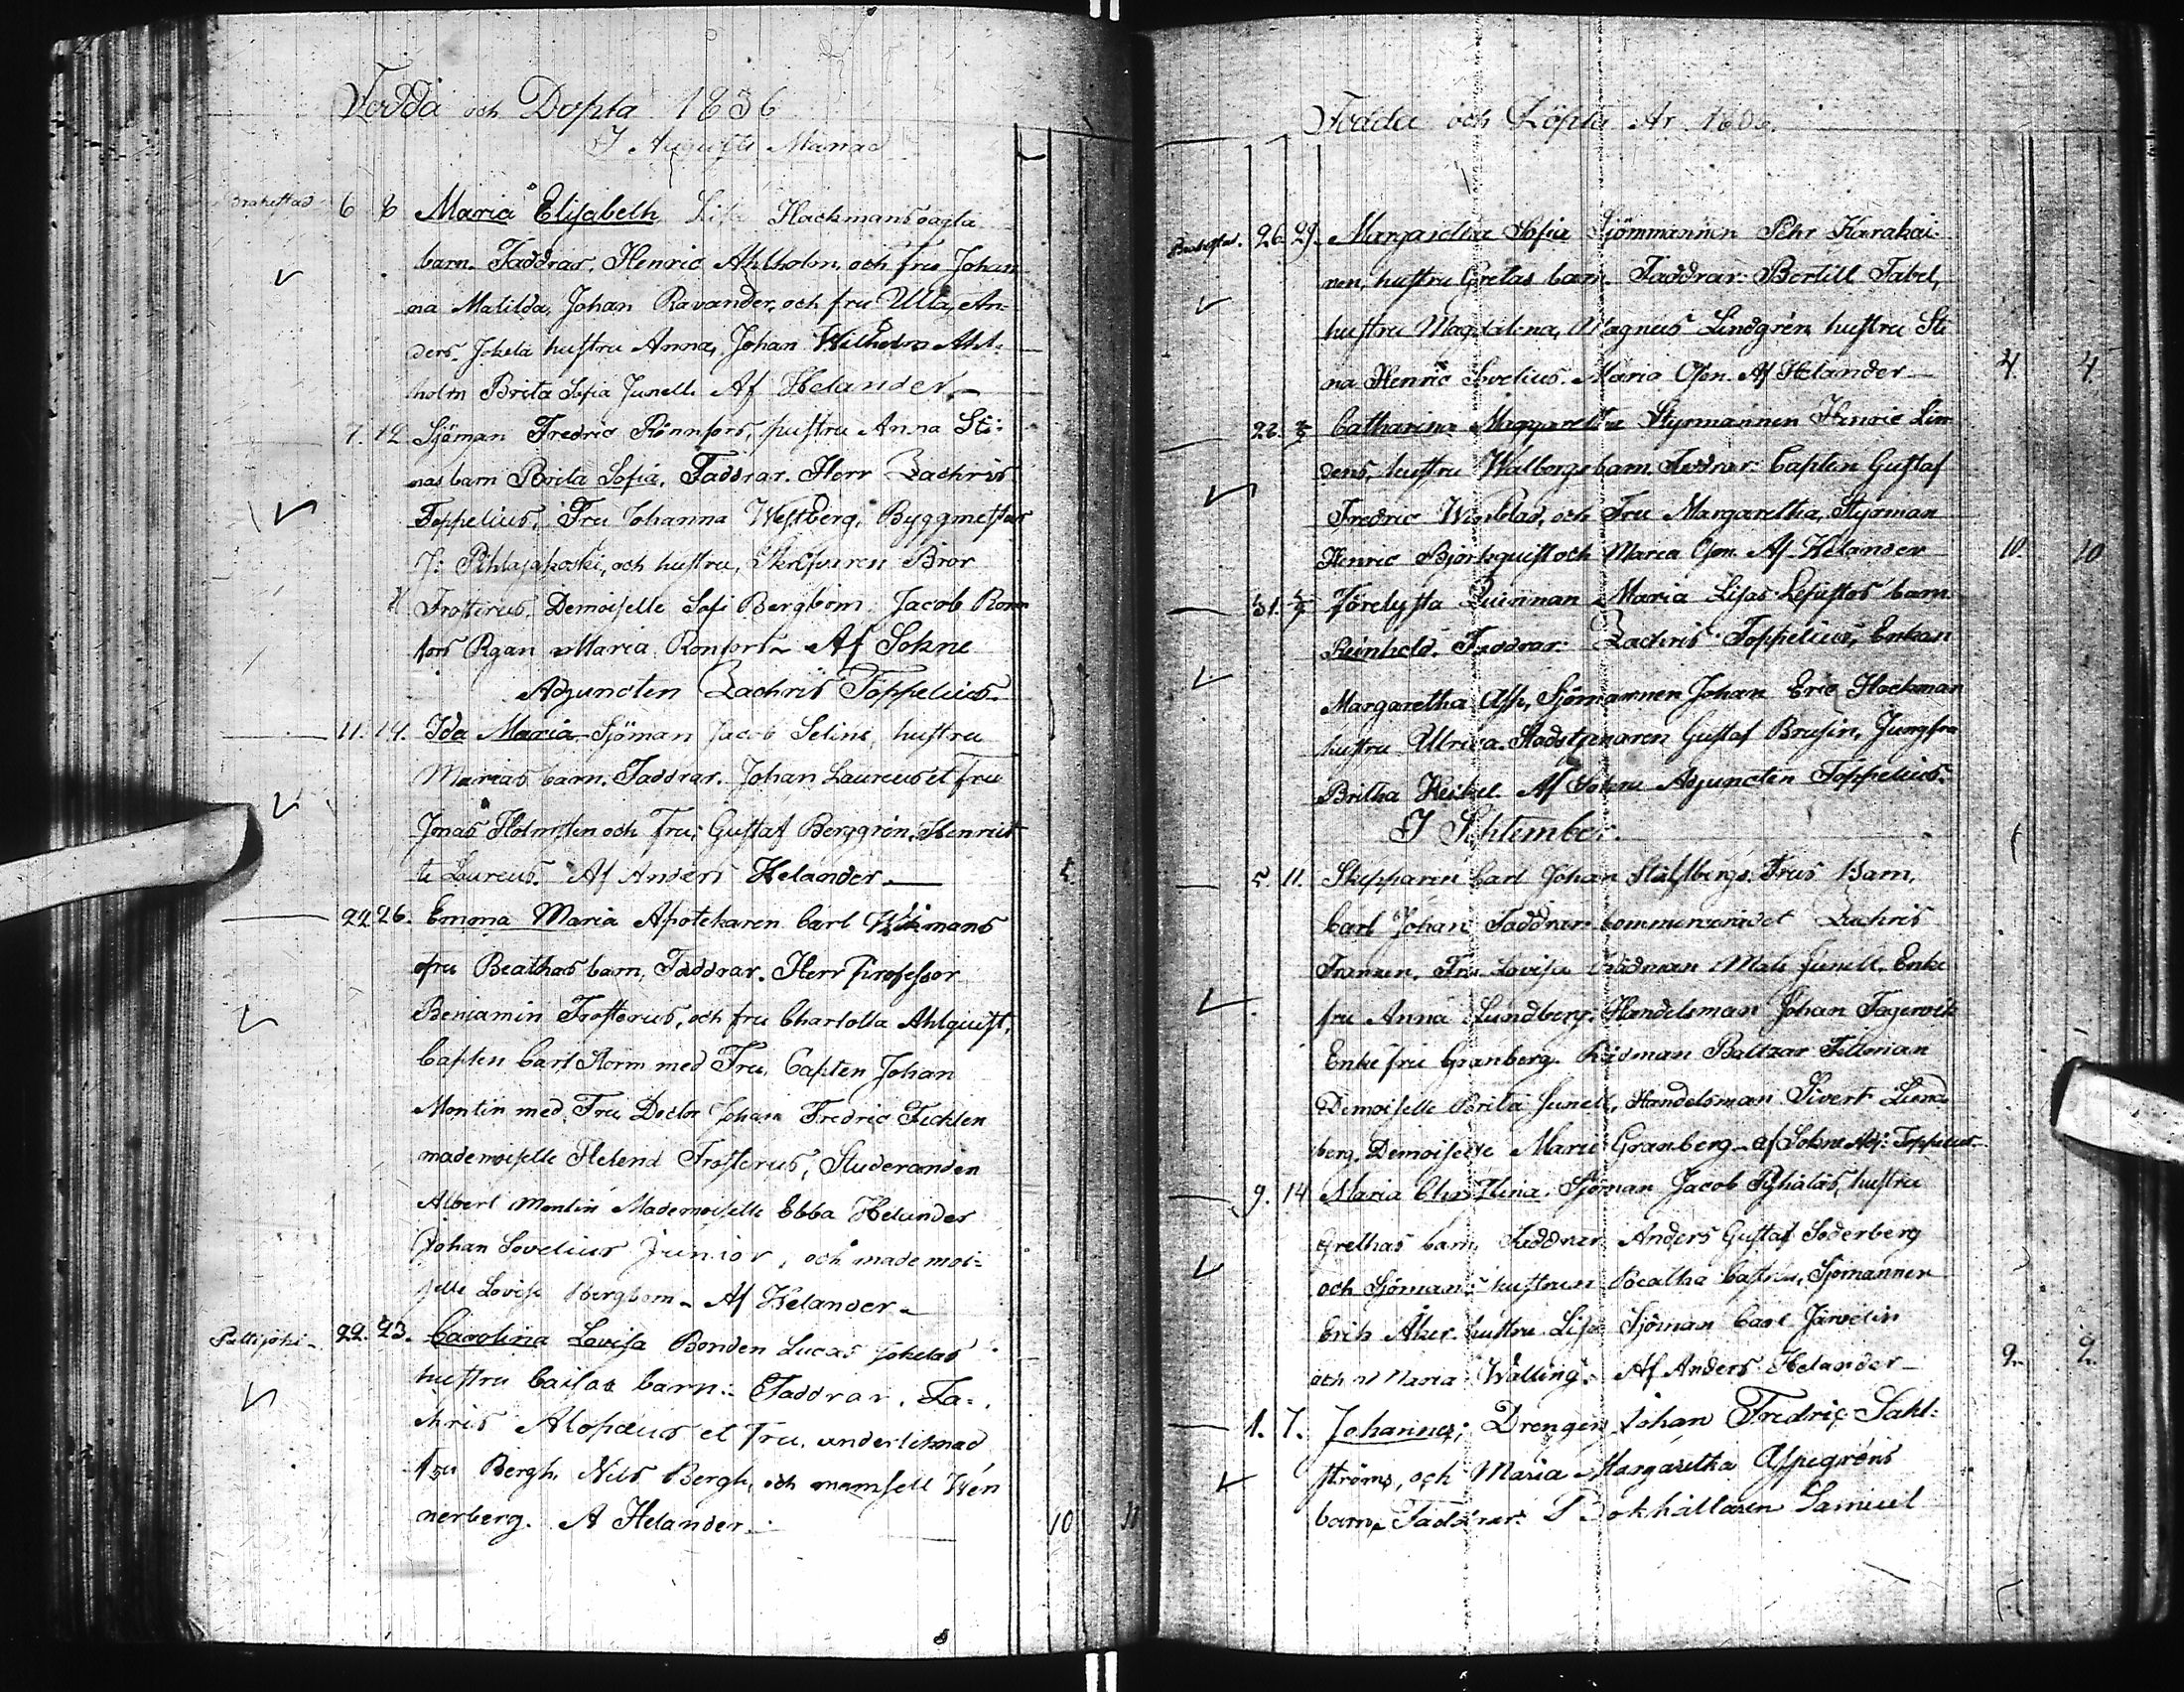 Födda och Döpta 1836
I Augusti Månad
Brahestad 6 8 Maria Elisabeth Lisa Hackmans oägta
barn. Faddrar, Henric Ahlholm, och fru Johan
na Matilda, Johan Ravander, och fru Ulla, An-
ders Jokela hustru Anna, Johan Wilhelm Ahl-
holm Brita Sofia Junell. Af Helander.
7. 12 Sjöman Fredric Rönnfors, hustru Anna Sti-
nas barn Brita Sofia. Faddrar. Herr Zachris
Toppelius, Fru Johanna Westberg, Byggmestar
J: Pihlajakoski, och hustru, Skepparen Bror
Frosterus, Demoiselle Sofi Bergbom. Jacob Rönn
fors Pgan Maria Ronfors. Af Sokne
Adjuncten Zachris Toppelius
11. 14. Ida Maria. Sjöman Jacob Selins, hustru
Marias barn. Faddrar. Johan Laureus et fru
Jonas Holmsten och Fru, Gustaf Berggrén, Henriet
te Laureus. Af Anders Helander 5
22. 26. Emma Maria Apotekaren Carl Wikmans
fru Beathas barn, Faddrar. Herr Professor
Benjamin Frosterus, och fru Charlotta Ahlquist,
Capten Carl Storm med Fru, Capten Johan
Montin med Fru Doctor Johan Fredric
mademoiselle Helena Frosterus, Studeranden
Albert Montin Mademoiselle Ebba Helander
Johan Sovelius Junior, och mademoi-
selle Lovisa Bergbom. Af Helander.
Pattijoki 22. 23. Carolina Lovisa Bonden Lucas Jokelas
hustru Cailas barn. Faddrar. Za-
chris Alopæus et Fru,
fru Bergh, Nils Bergh, och mamsell Wén
nerberg. A Helander. 10 11
Födda och Döpta År 1836.
Brahestad. 26. 29. Margaretha Sofia Sjömmannen Pehr Karakai-
nen, hustru Gretas barn. Faddrar: Bertill Tabel,
hustru Magdalena, Magnus Lindgrén hustru Sti
na Henric Sovelius. Maria Ojen. Af Helander 4. 4.
22. Catharina Margaretha Styrmannen Henric Lin
dens, hustru Walborgs barn. Faddrar: Capten Gustaf
Fredric Winblad, och Fru Margaretha, Styrman
Henric Björkquist och Maria Ojen. Af Helander 10. 10
31. Förelysta Quinnan Maria Lisas barn
Reinhold. Faddrar: Zachris Toppelius, Enkan
Margaretha Asp, Sjömannen Johan Eric Hackman
hustru Ulrica. Stadstjenaren Gustaf Brusin, Jungfru
Britha Heikel. Af Sokne Adjuncten Toppelius.
I September.
5. 11. Skepparen Carl Johan Stålbergs Frus Barn,
Carl Johan Faddrar: Commerserådet Zachris
Franzen, Fru Lovisa Rådman Mats Junell, Enke
fru Anna Lundberg, Handelsman Johan Fagervik
Enkefru Granberg. Rådman Baltzar Fellman
Demoiselle Brita Junell, Handelsman Sivert Lund
berg, Demoiselle Marie Granberg af Sokne Adj: Toppelius
9. 14 Maria Christina. Sjöman Jacob Pyhäläs, hustru
Grethas barn, Faddrar Anders Gustaf Söderberg
och Sjömans hustrun Beatha Castrén, Sjömannen
Erik Åker hustru Lisa Sjöman Carl Järvelin
och Maria Wälling. Af Anders Helander 9. 9.
1. 7. Johannes; Drengen Johan Fredric Sahl-
ströms, och Maria Margaretha Aspegréns
barn, Faddrar: Bokhållaren Samuel